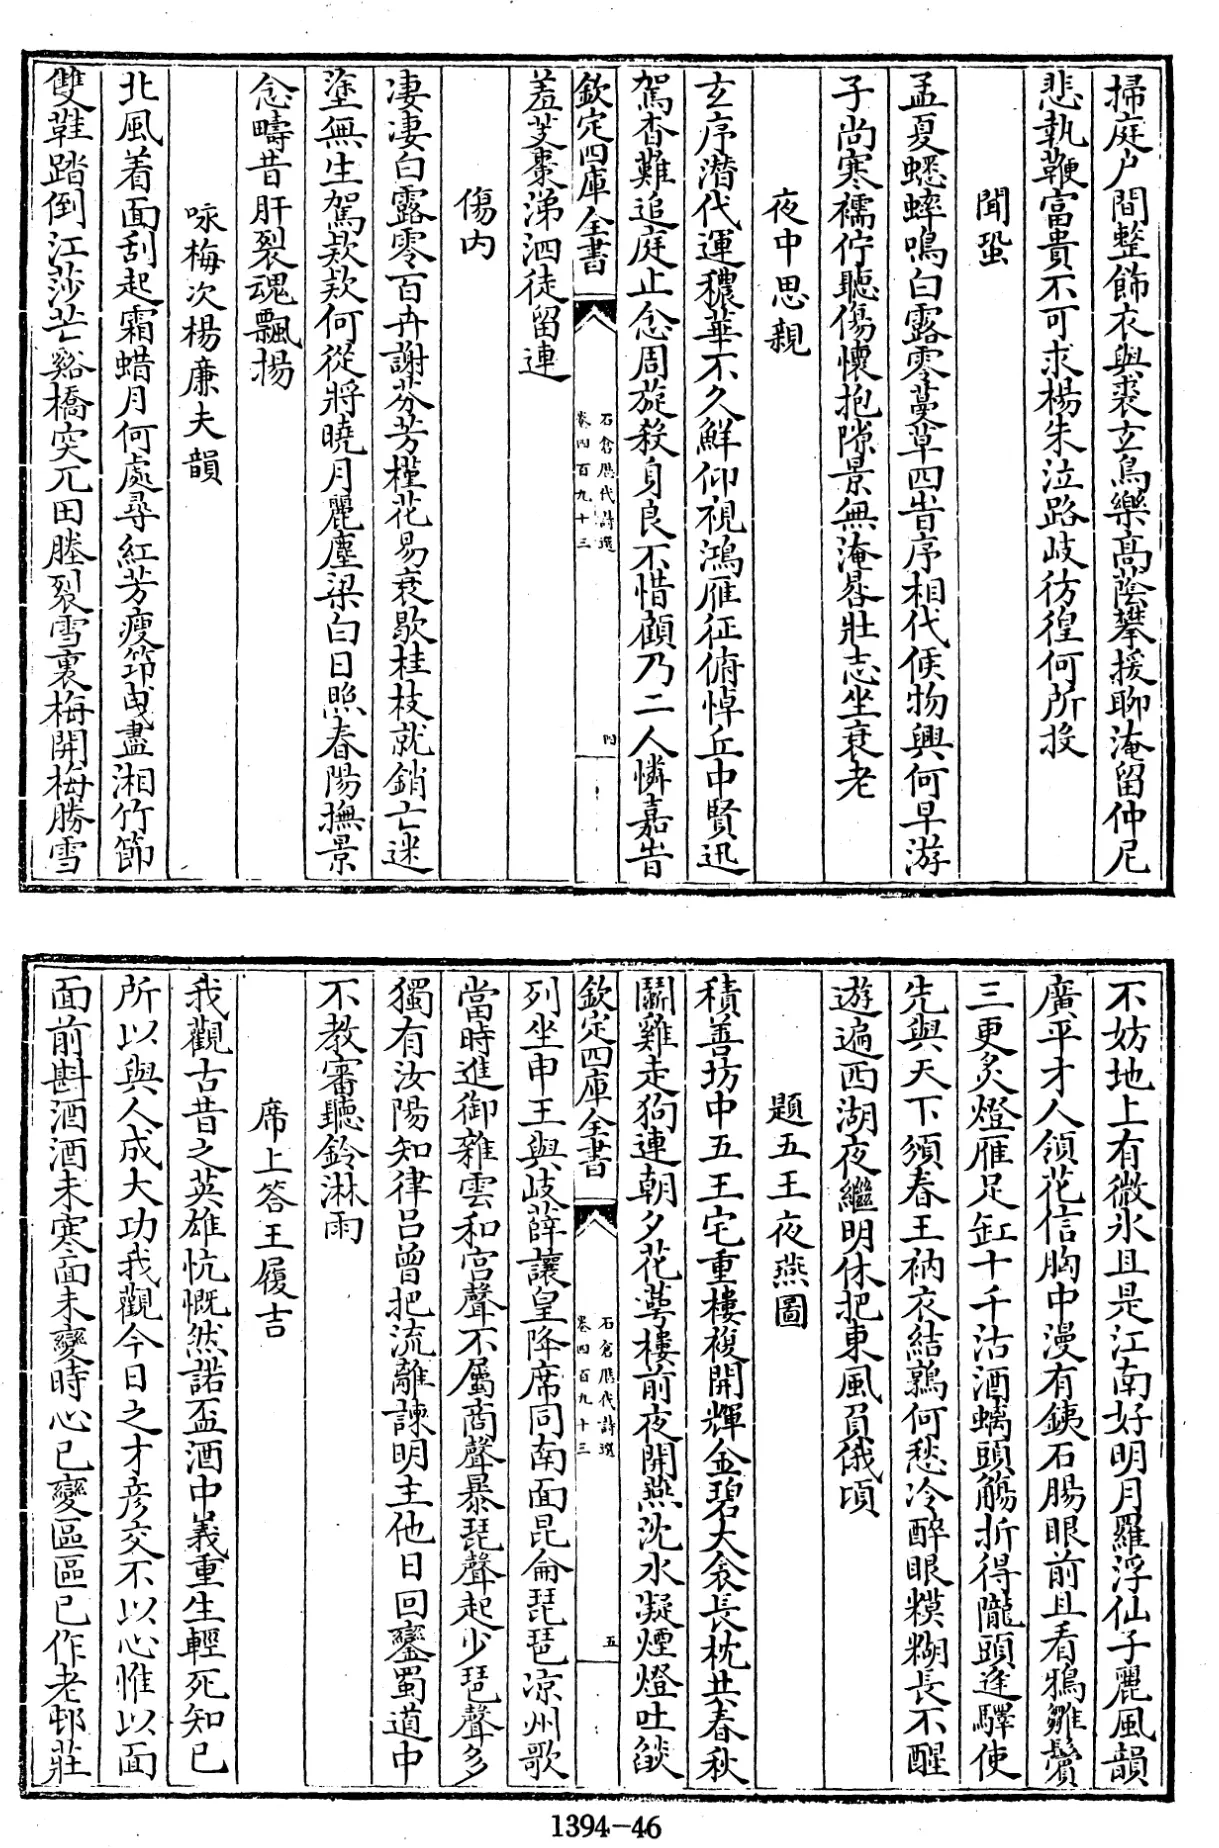 掃庭户間整飾衣與裘玄鳥樂髙蔭攀援聊淹留仲尼
悲執鞭富貴不可求楊朱泣路岐彷徨何所投
聞蛩
孟夏蟋蟀鳴白露零蔓草四旹序相代候物興何早游
子尚寒襦佇聽傷懐抱隙景無淹晷壯志坐衰老
夜中思親
玄序潛代運穠華不久鮮仰視鴻雁征俯悼丘中賢迅
駕杳難追庭止念周旋殺身良不惜顧乃二人憐嘉旹
欽定四庫全書
石倉歷代詩選
卷四百九十三
四
羞芰棗涕泗徒留連
傷内
凄凄白露零百卉謝芬芳槿花易衰歇桂枝就銷亡迷
塗無生駕欵欵何從將曉月麗塵梁白日照春陽撫景
念疇昔肝裂魂飄揚
咏梅次楊廉夫韻
北風着面刮起霜蜡月何處尋紅芳瘦筇曳盡湘竹節
雙鞋踏倒江莎芒谿橋突兀田塍裂雪裏梅開梅勝雪
不妨地上有微氷且是江南好明月羅浮仙子麗風韻
廣平才人領花信胸中漫有銕石腸眼前且看鴉雛鬢
三更炙燈雁足缸十千沽酒螭頭觴折得隴頭逢驛使
先與天下頒春王衲衣結鶉何愁冷醉眼糢糊長不醒
遊遍西湖夜繼明休把東風負俄頃
題五王夜燕圖
積善坊中五王宅重樓複閣輝金碧大衾長枕共春秋
鬭雞走狗連朝夕花蕚樓前夜開燕沈水凝煙燈吐燄
欽定四庫全書
石倉歷代詩選
卷四百九十三
五
列坐申王與岐薛讓皇降席同南面昆侖琵琶凉州歌
當時進御雜雲和宫聲不屬商聲暴琵聲起少琶聲多
獨有汝陽知律吕曾把流離諫明主他日回鑾蜀道中
不教審聽鈴淋雨
席上答王履吉
我觀古昔之英雄忼慨然諾盃酒中義重生輕死知已
所以與人成大功我觀今日之才彦交不以心惟以面
面前斟酒酒未寒面未變時心已變區區已作老邨莊
1394-46